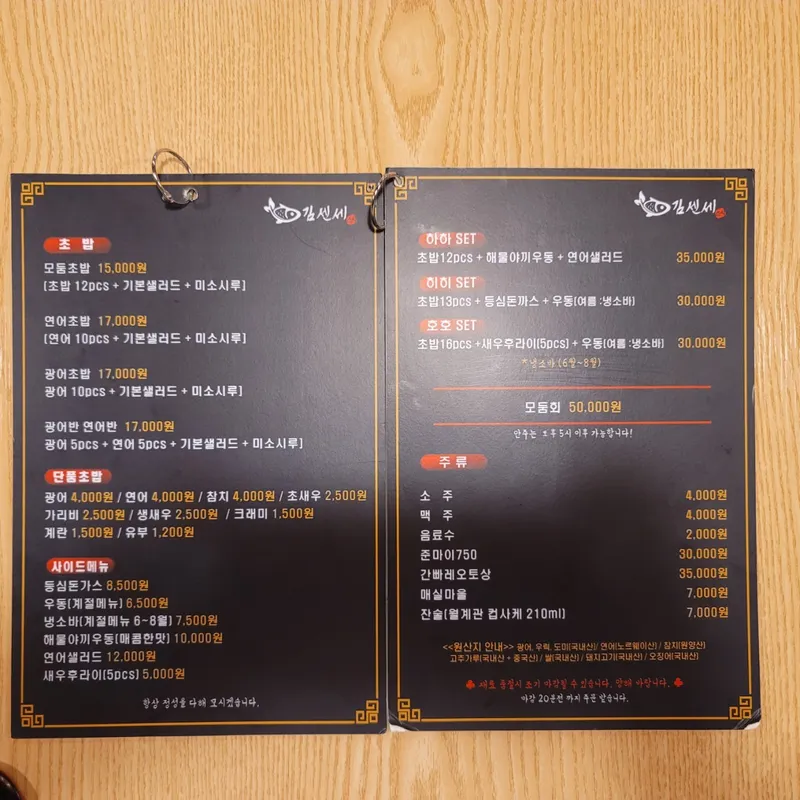 김센세
초 밥
모둠초밥 15,000원
[초밥 12pcs + 기본샐러드 + 미소시루]
연어초밥 17,000원
[연어 10pcs + 기본샐러드 + 미소시루]
광어초밥 17,000원
광어 10pcs + 기본샐러드 + 미소시루]
광어반 연어반 17,000원
광어 5pcs + 연어 5pcs + 기본샐러드 + 미소시루]
단품초밥
광어 4,000원 / 연어 4,000원 / 참치 4,000원 / 초새우 2,500원
가리비 2,500원 / 생새우 2,500원 / 크래미 1,500원
계란 1,500원 / 유부 1,200원
사이드메뉴
등심돈가스 8,500원
우동(계절메뉴) 6,500원
냉소바(계절메뉴 6~8월) 7,500원
해물야끼우동(매콤한맛) 10,000원
연어샐러드 12,000원
새우후라이(5pcs) 5,000원
항상 정성을 다해 모시겠습니다.
김센세
하하 SET
초밥12pcs + 해물야끼우동 + 연어샐러드 35,000원
히히 SET
초밥13pcs + 등심돈까스 + 우동(여름 :냉소바) 30,000원
호호 SET
초밥16pcs +새우후라이(5pcs) + 우동(여름 :냉소바) 30,000원
*냉소바 (6월~8월)
모둠회 50,000원
안주는 오후 5시 이후 가능합니다!
주 류
소 주 4,000원
맥 주 4,000원
음료수 2,000원
준마이750 30,000원
간빠레오토상 35,000원
매실마을 7,000원
잔술(월계관 컵사케 210ml) 7,000원
<<원산지 안내>> 광어, 우럭, 도미(국내산)/ 연어(노르웨이산) / 참치(원양산)
고추가루(국내산 + 중국산) / 쌀(국내산) / 돼지고기(국내산) / 오징어(국내산)
♣ 재료 소진시 조기 마감될 수 있습니다. 양해 바랍니다. ♣
마감 20분전 까지 주문 받습니다.